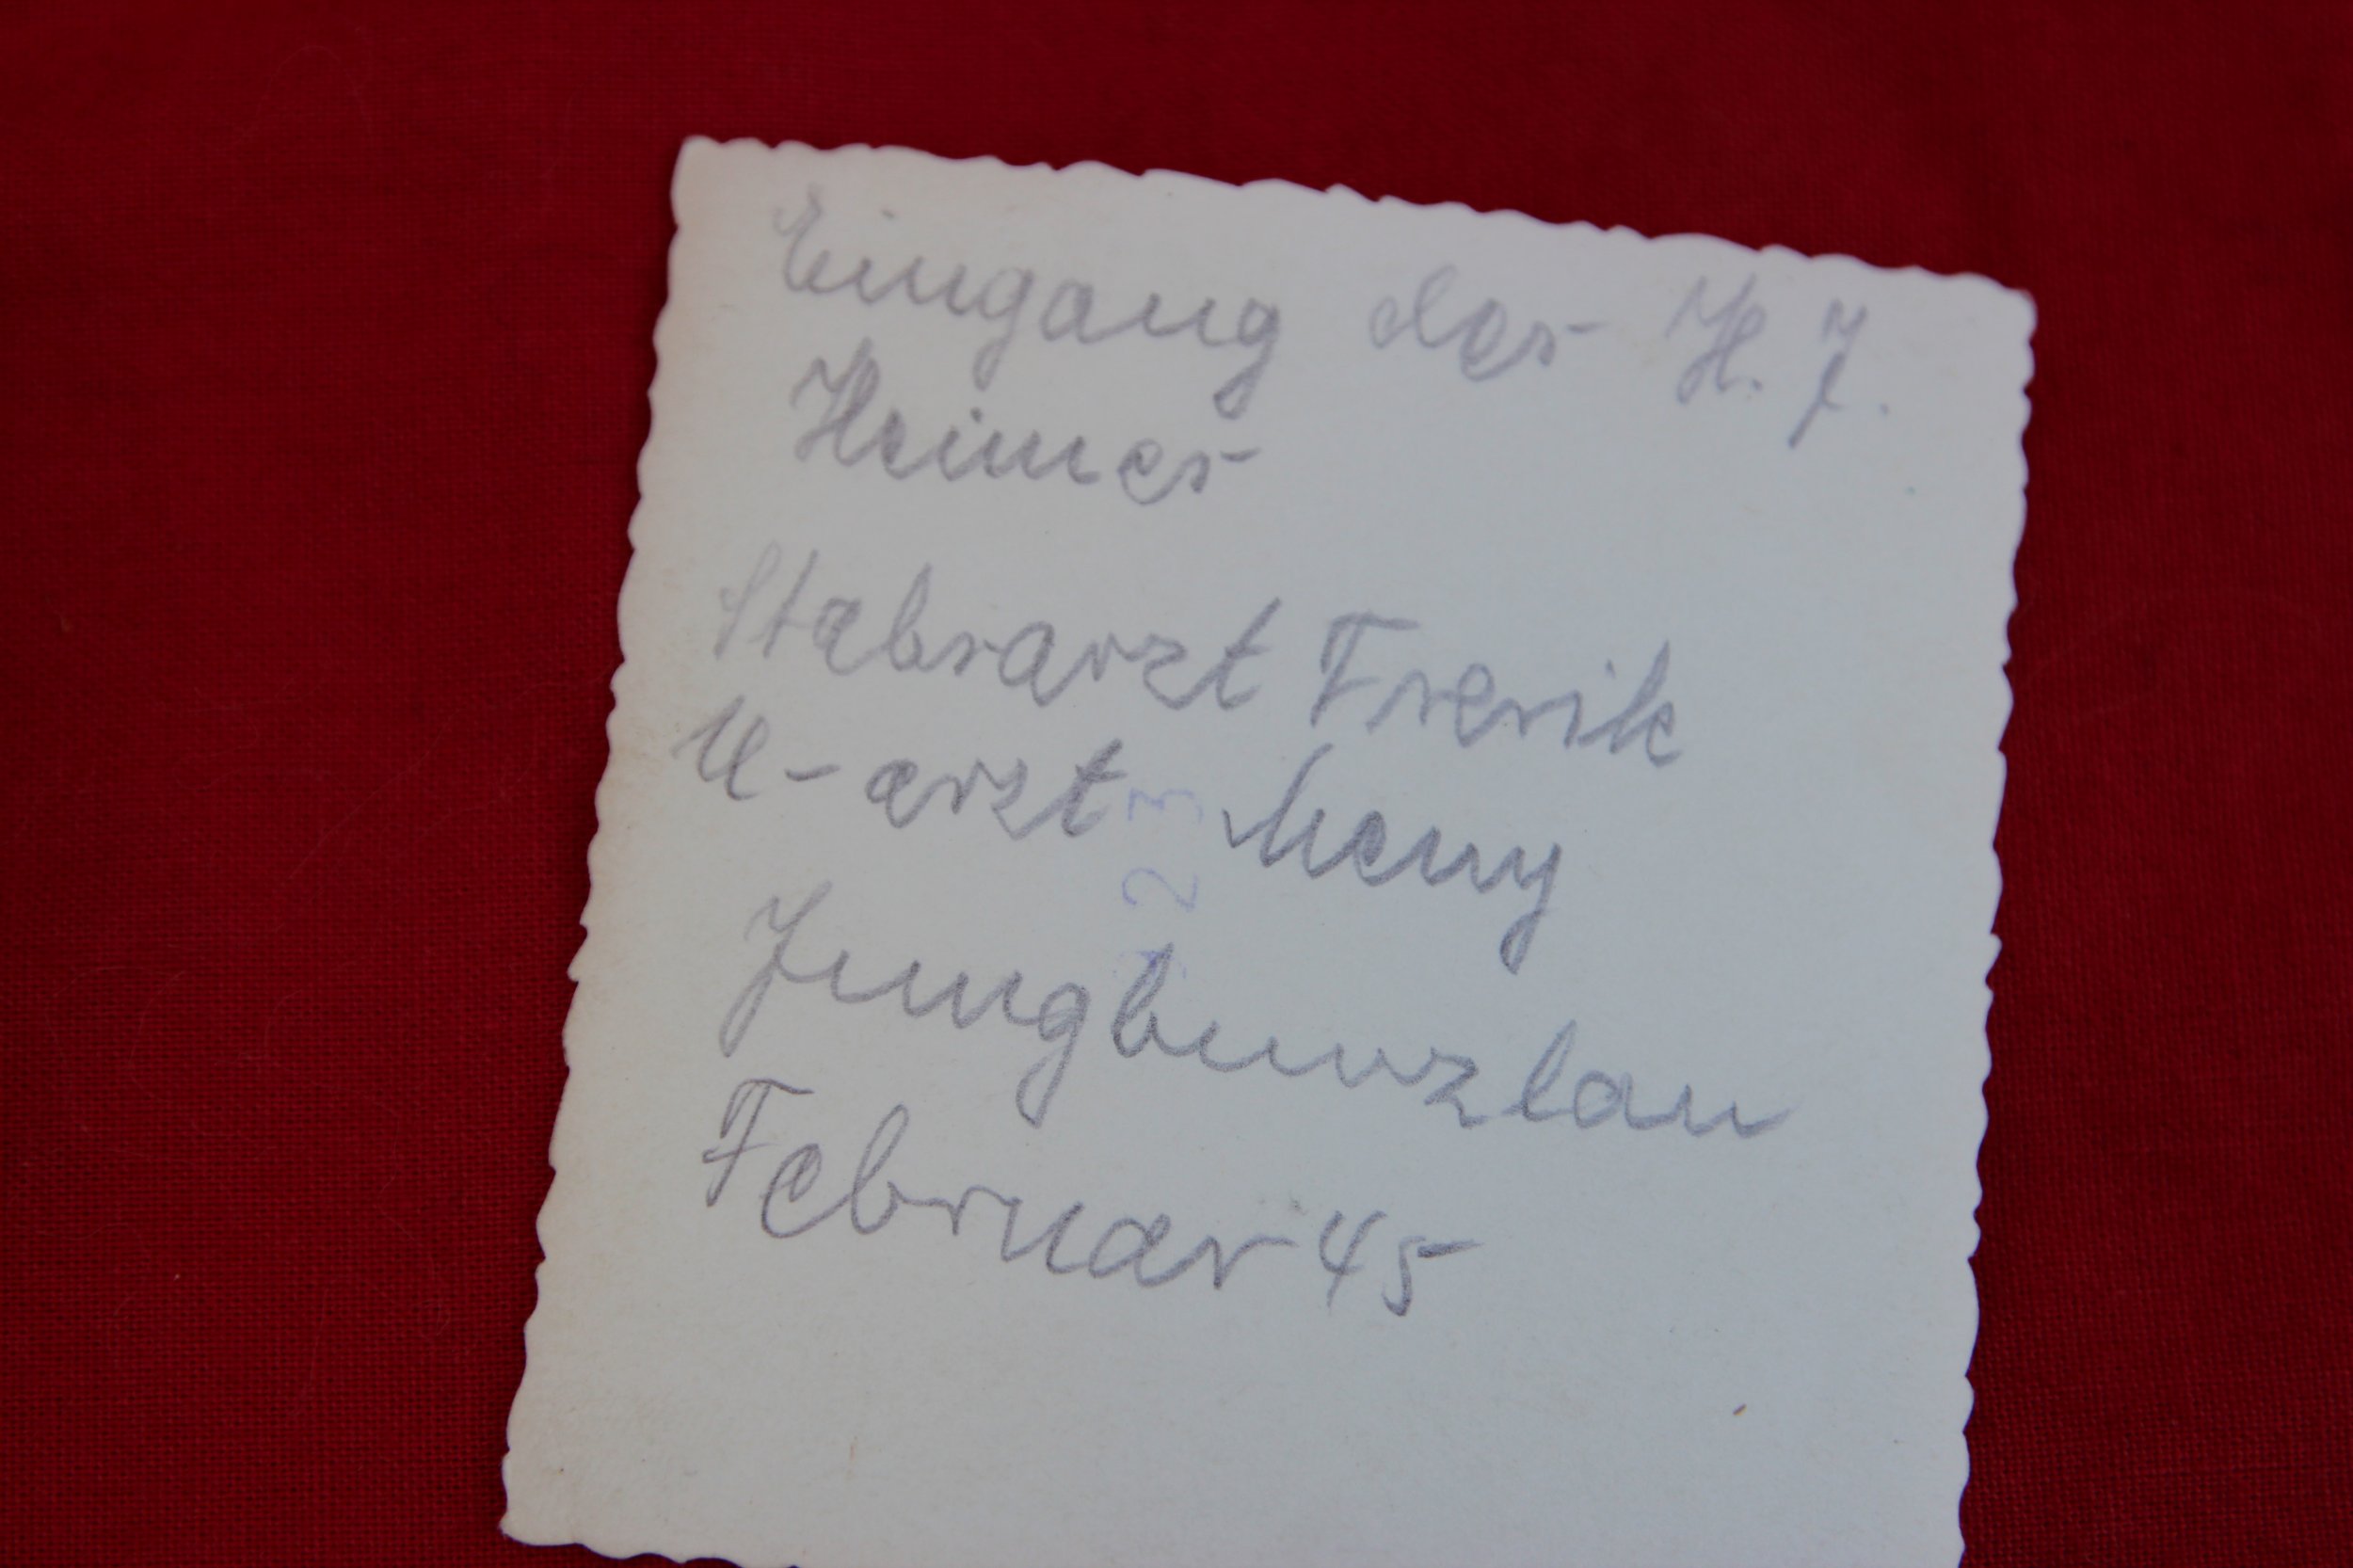 Eingang des H. J.
Heimes
Stabsarzt Frerik
U-arzt
Jungbunzlau
Februar 45
23